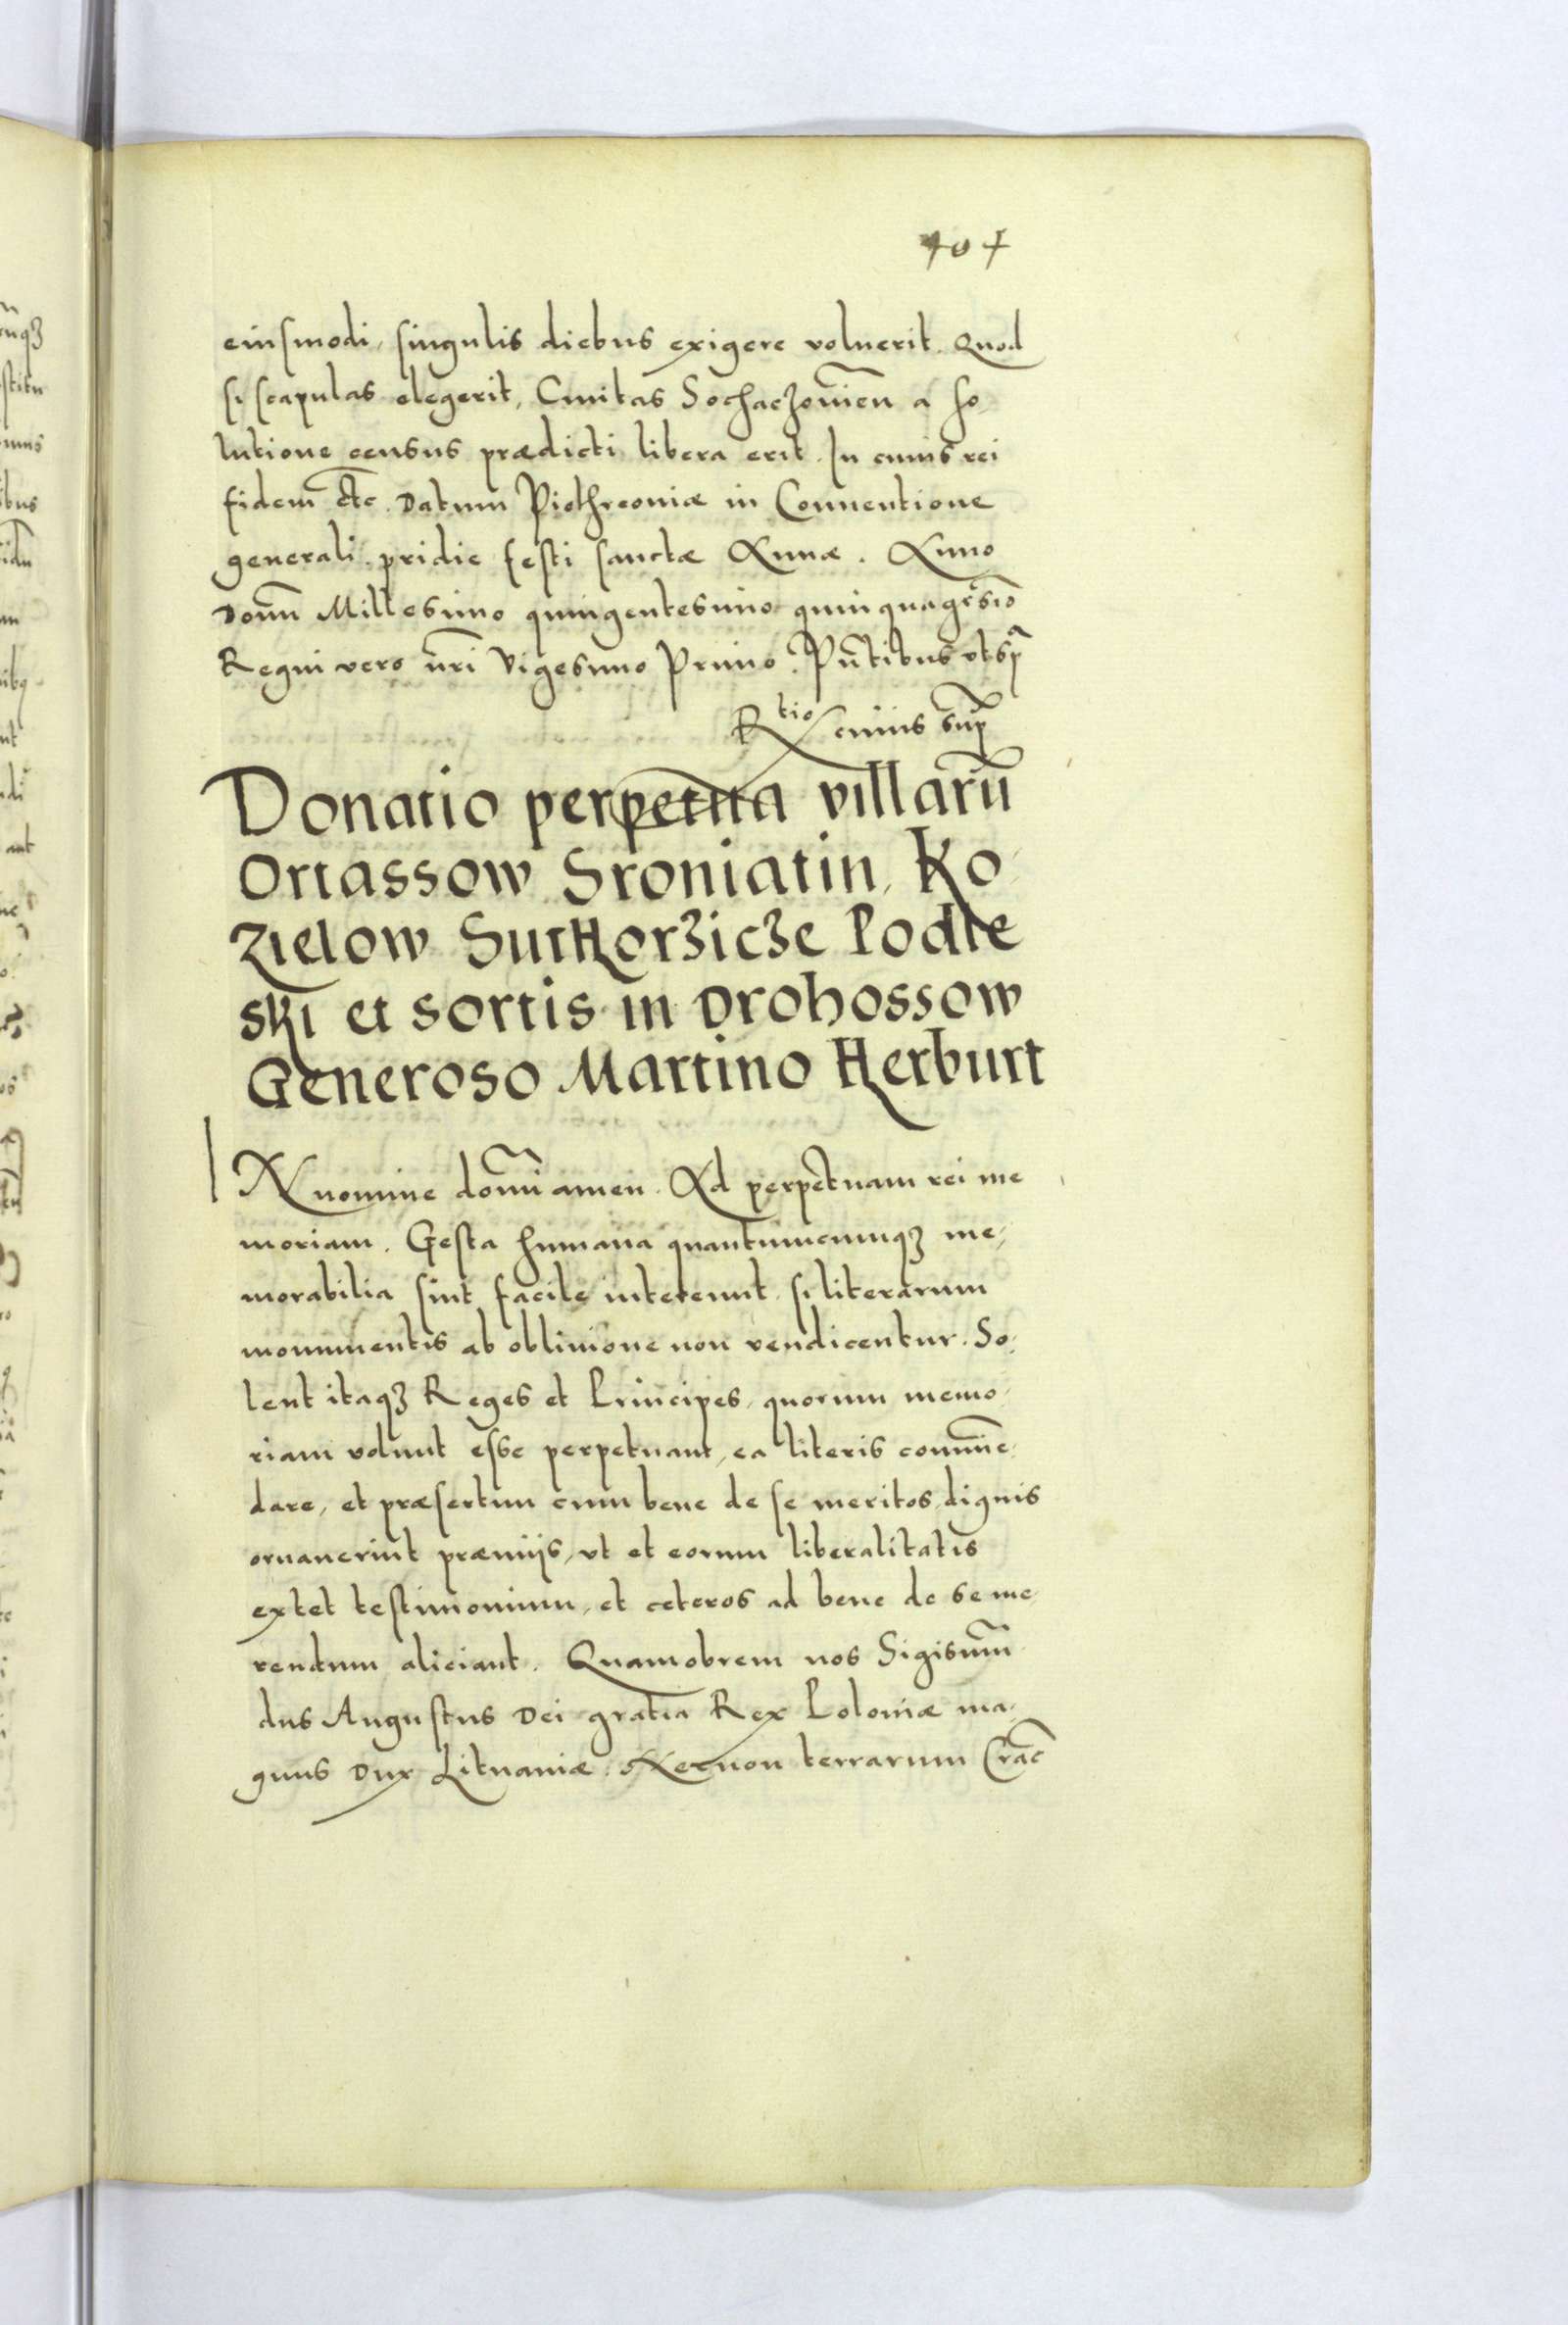 eiusmodi, singulis diebus exigere voluerit. Quod
si scapulas elegerit, Ciuitas Sochaczouien̄ a so,
lutione census prædicti libera erit. In cuius rei
fidem etc. Datum Piothrcouiæ in Conuentione
generali. pridie festi sanctæ Annæ. Anno
Domī Millesimo quingentesimo quinquagesīo
Regni vero nr̄i Vigesimo Primo. Pn̄tibus vt sp̄a
R^tio cuius sup̄
Donatio perpetua villarū
Ortassow Sroniatin, Ko,
zielow Suthorzicze Podle
ski et sortis in Drohossow
Generoso Martino Herburt
IN nomine domī amen. Ad perpetuam rei me
moriam. Gesta humana quantumcumqꝫ me,
morabilia sint facile intereunt, si literarum
monumentis ab obliuione non vendicentur. So,
lent itaqꝫ Reges et Principes, quorum memo,
riam volunt esse perpetuam, ea literis comme̅,
dare, et præsertim cum bene de se meritos, dignis
ornauerint præmijs, vt et eorum liberalitatis
extet testimonium, et ceteros ad bene de se me,
rendum aliciant. Quamobrem nos Sigismū
dus Augustus Dei gratia Rex Poloniæ ma,
gnus Dux Lituaniæ. Necnon terrarum Crac̄